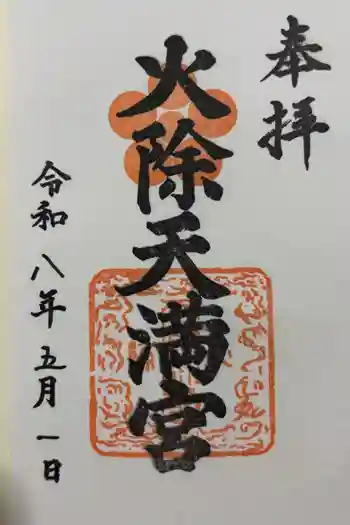 奉拝
火除天満宮
令和八年五月一日